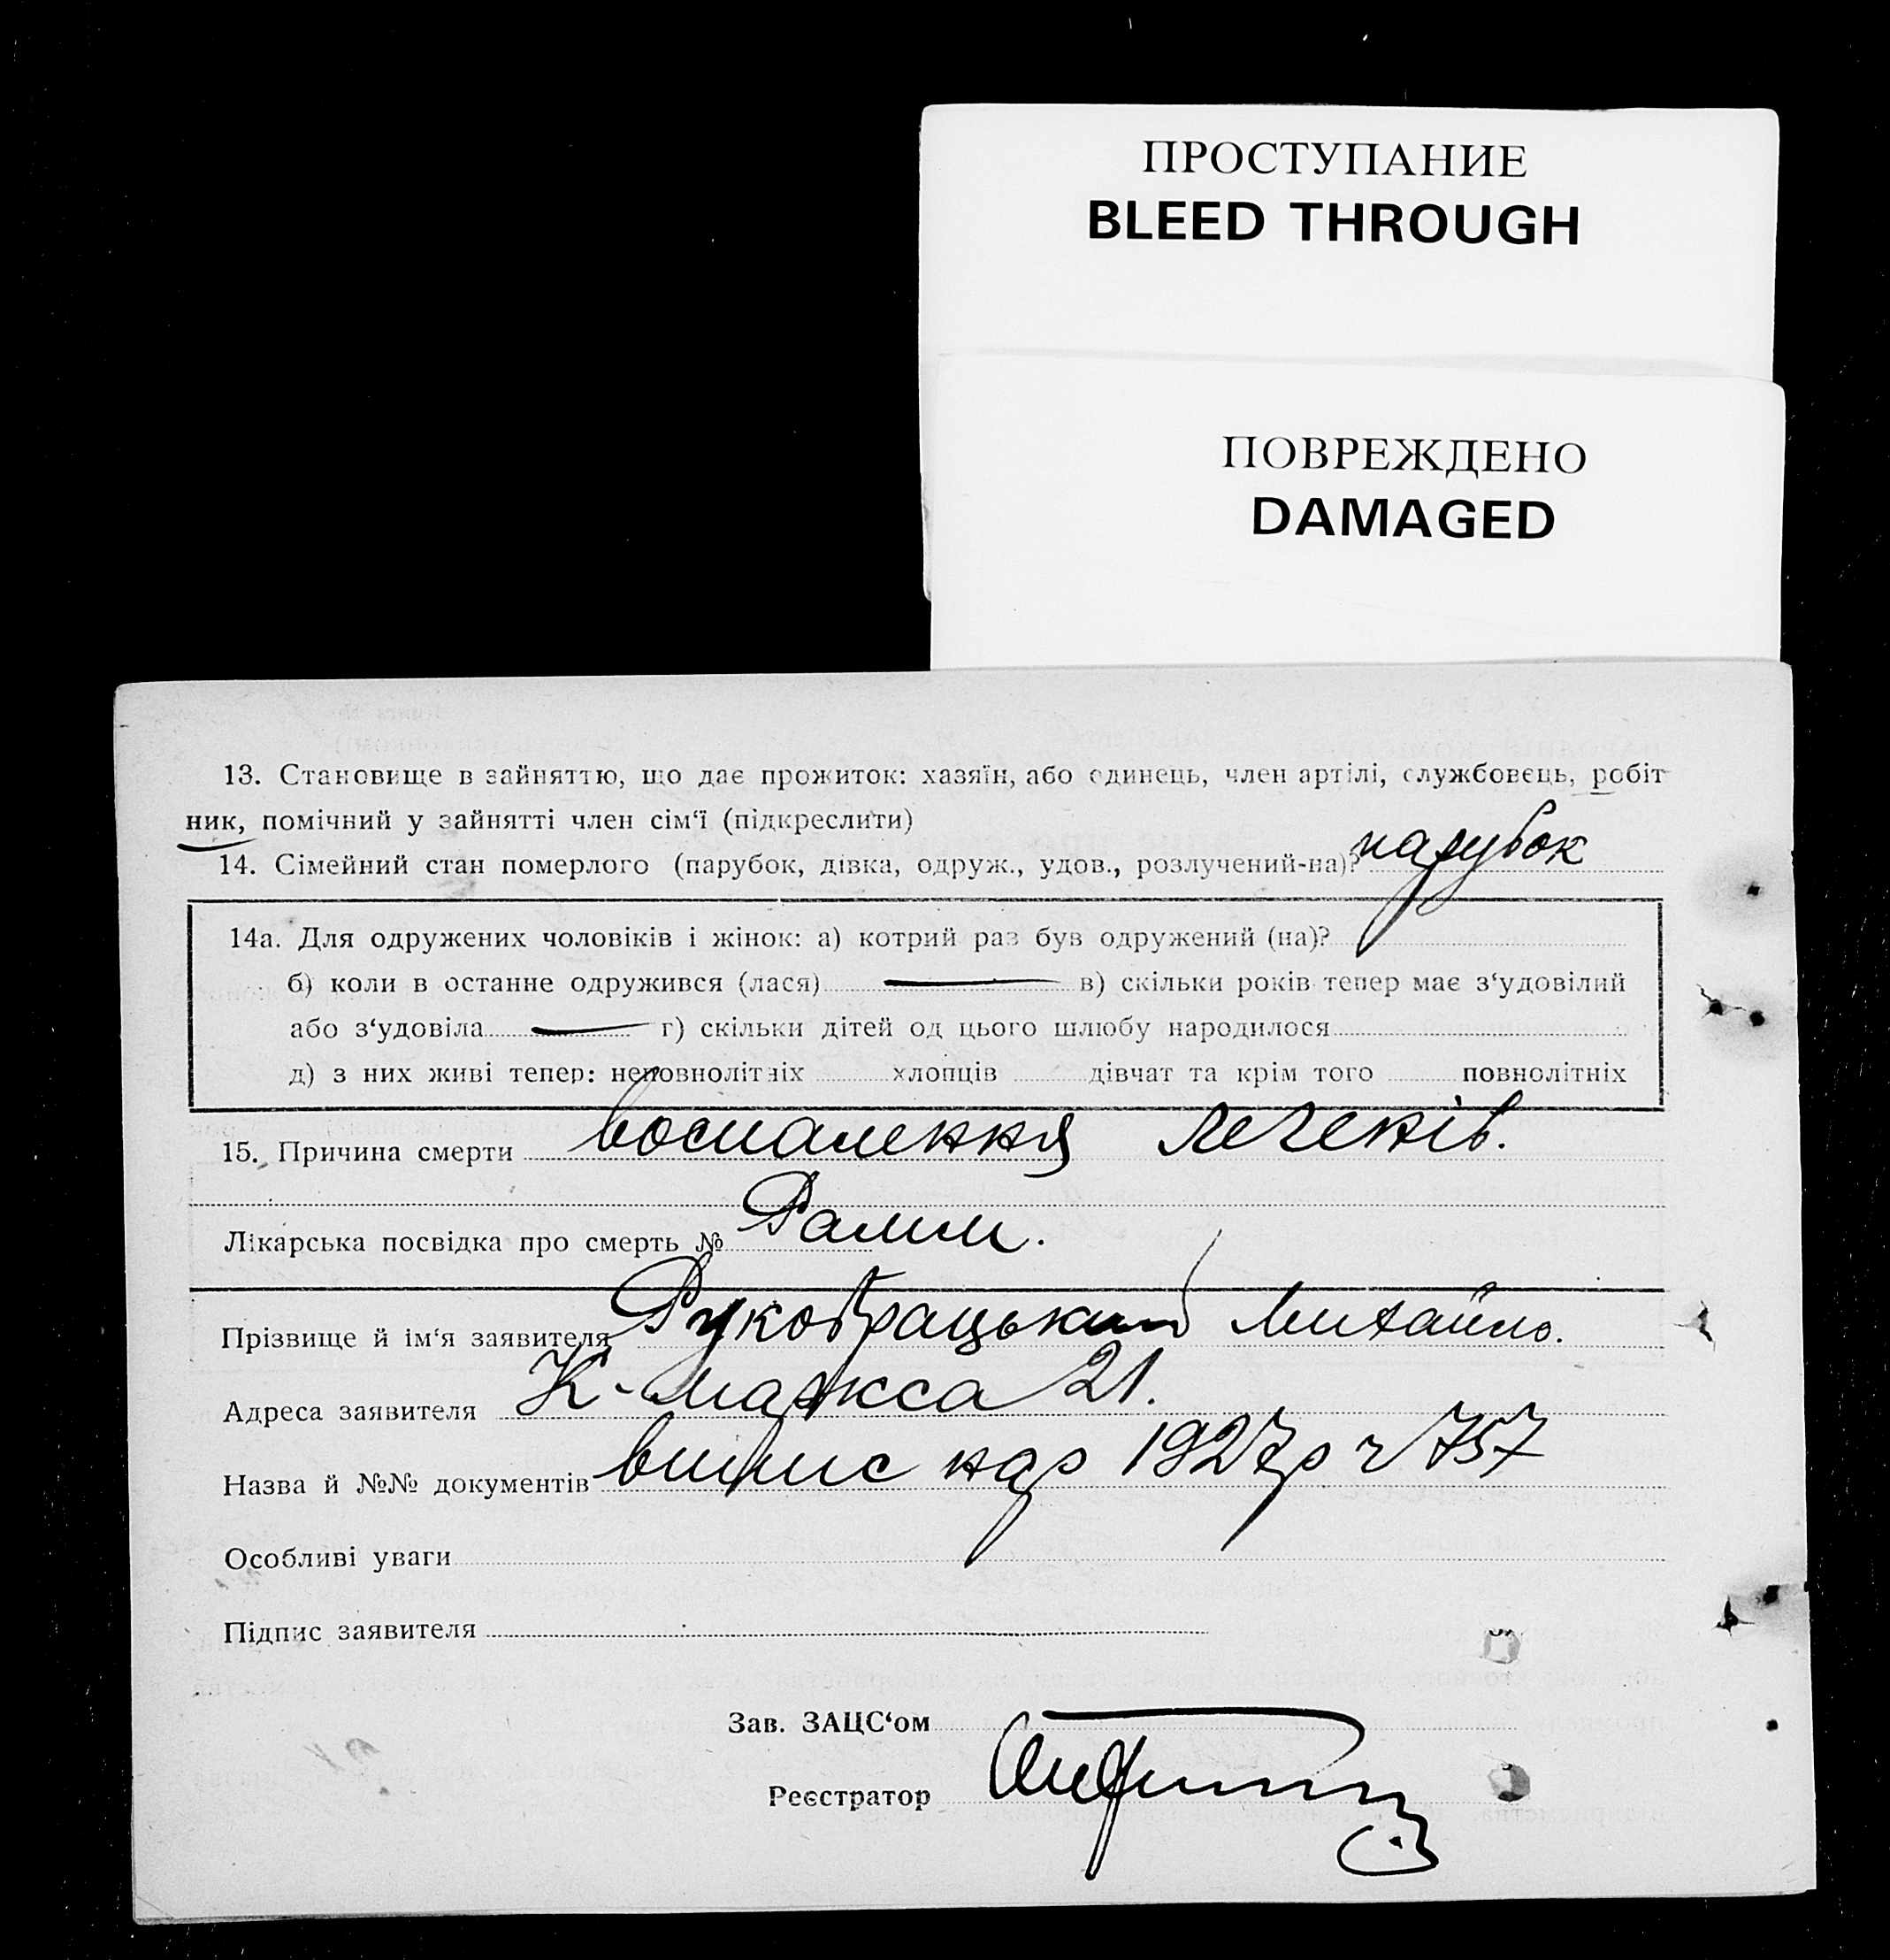 ПРОСТУПАНИЕ
BLEED THROUGH
ПОВРЕЖДЕНО
DAMAGED
13. Становище в зайняттю, що дає прожиток: хазяїн, або єдинець, член артілі, службовець, робіт
ник, помічний у зайнятті член сім‘ї (підкреслити)
14. Сімейний стан померлого (парубок, дівка, одруж., удов., розлучений-на)? парубок
14а. Для одружених чоловіків і жінок: а) котрий раз був одружений (на)?
б) коли в останне одружився (лася) — в) скільки років тепер має з‘удовілий
або з‘удовіла — г) скільки дітей од цього шлюбу народилося
д) з них живі тепер: неповнолітніх хлопців дівчат та крім того повнолітніх
15. Причина смерти воспалення легенів.
Лікарська посвідка про смерть №
Прізвище й ім‘я заявителя Михайло.
Адреса заявителя К-Маркса 21.
Назва й №№ документів випис нар 1927р ч 757
Особливі уваги
Підпис заявителя
Зав. ЗАЦС‘ом
Реєстратор